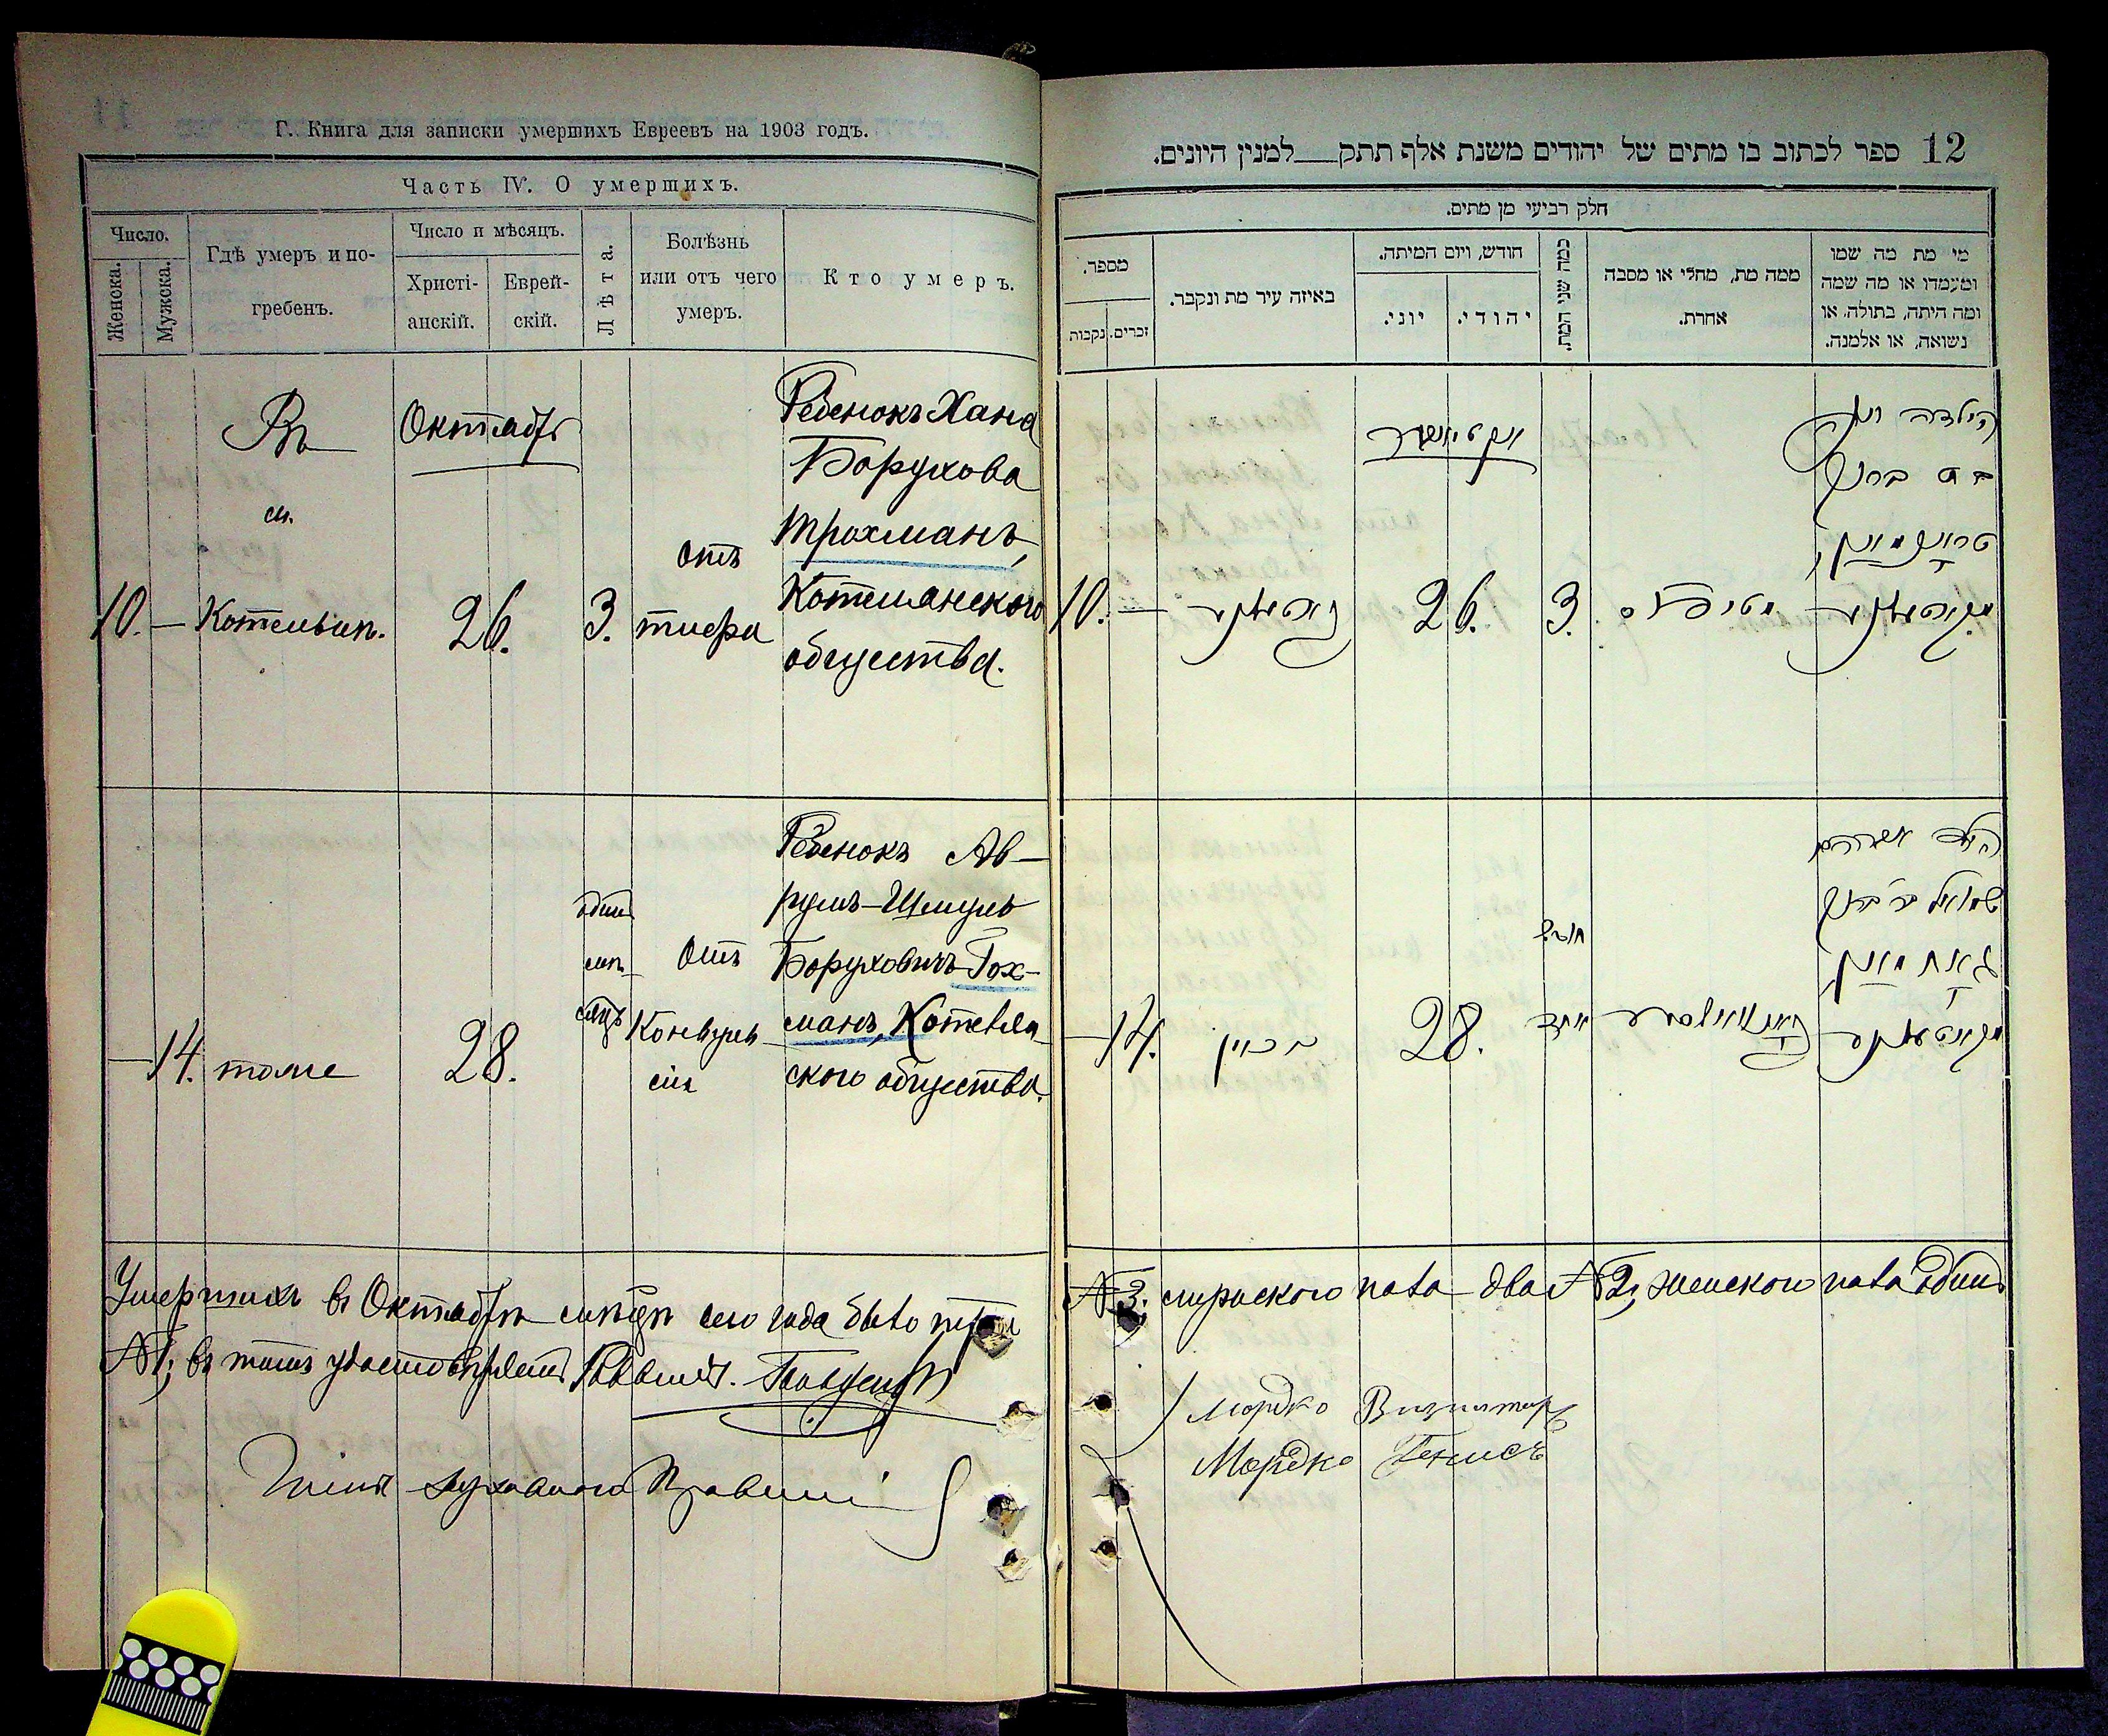 Г. Книга для записки умершихъ Евреевъ на 1903 годъ.
Часть IV. О умершихъ.
Число.
Женска.
Мужска.
Гдѣ умеръ и по-
гребенъ.
Число и мѣсяцъ.
Христі-
анскій.
Еврей-
скій.
Лѣта.
Болѣзнь
или отъ чего
умеръ.
Кто умеръ.
Въ
м.
10. — Котельнѣ.
Октября
26.
3.
отъ
тифа
Ребенокъ Хана
Борухова
Трохманъ,
Котелянского
общества.
— 14. тоже
28.
одинъ
мѣ-
сяцъ
Отъ
Конвуль-
сія
Ребенокъ Ав-
румъ-Шмуль
Боруховичъ Гох-
манъ, Котелян-
ского общества.
Умершихъ въ Октябрѣ мѣсяцѣ сего года было три
№1; въ томъ удостовѣряемъ Раввинъ.
Члены духовного Правленія
12
ספר לכתוב בו מתים של יהודים משנת אלף תתק__למנין היונים.
חלק רביעי מן מתים.
מספר.
זכרים.
נקבות
באיזה עיר מת ונקבר.
חודש, ויום המיתה.
יוני.
יהודי.
כמה שני המת.
ממה מת, מחלי או מסבה
אחרת.
מי מת מה שמו
ומעמדו או מה שמה
ומה היתה, בתולה, או
נשואה, או אלמנה.
10. —
26.
3.
הילדה חנה
בת ברוך
טראכמאן,
— 14.
28.
חודש
אחד
הילד אברהם
שמואל ב״ר ברוך
גאחמאן,
№3; мужского пола два №2; женского пола одинъ
Мордко Визилтеръ
Мордко Генисъ